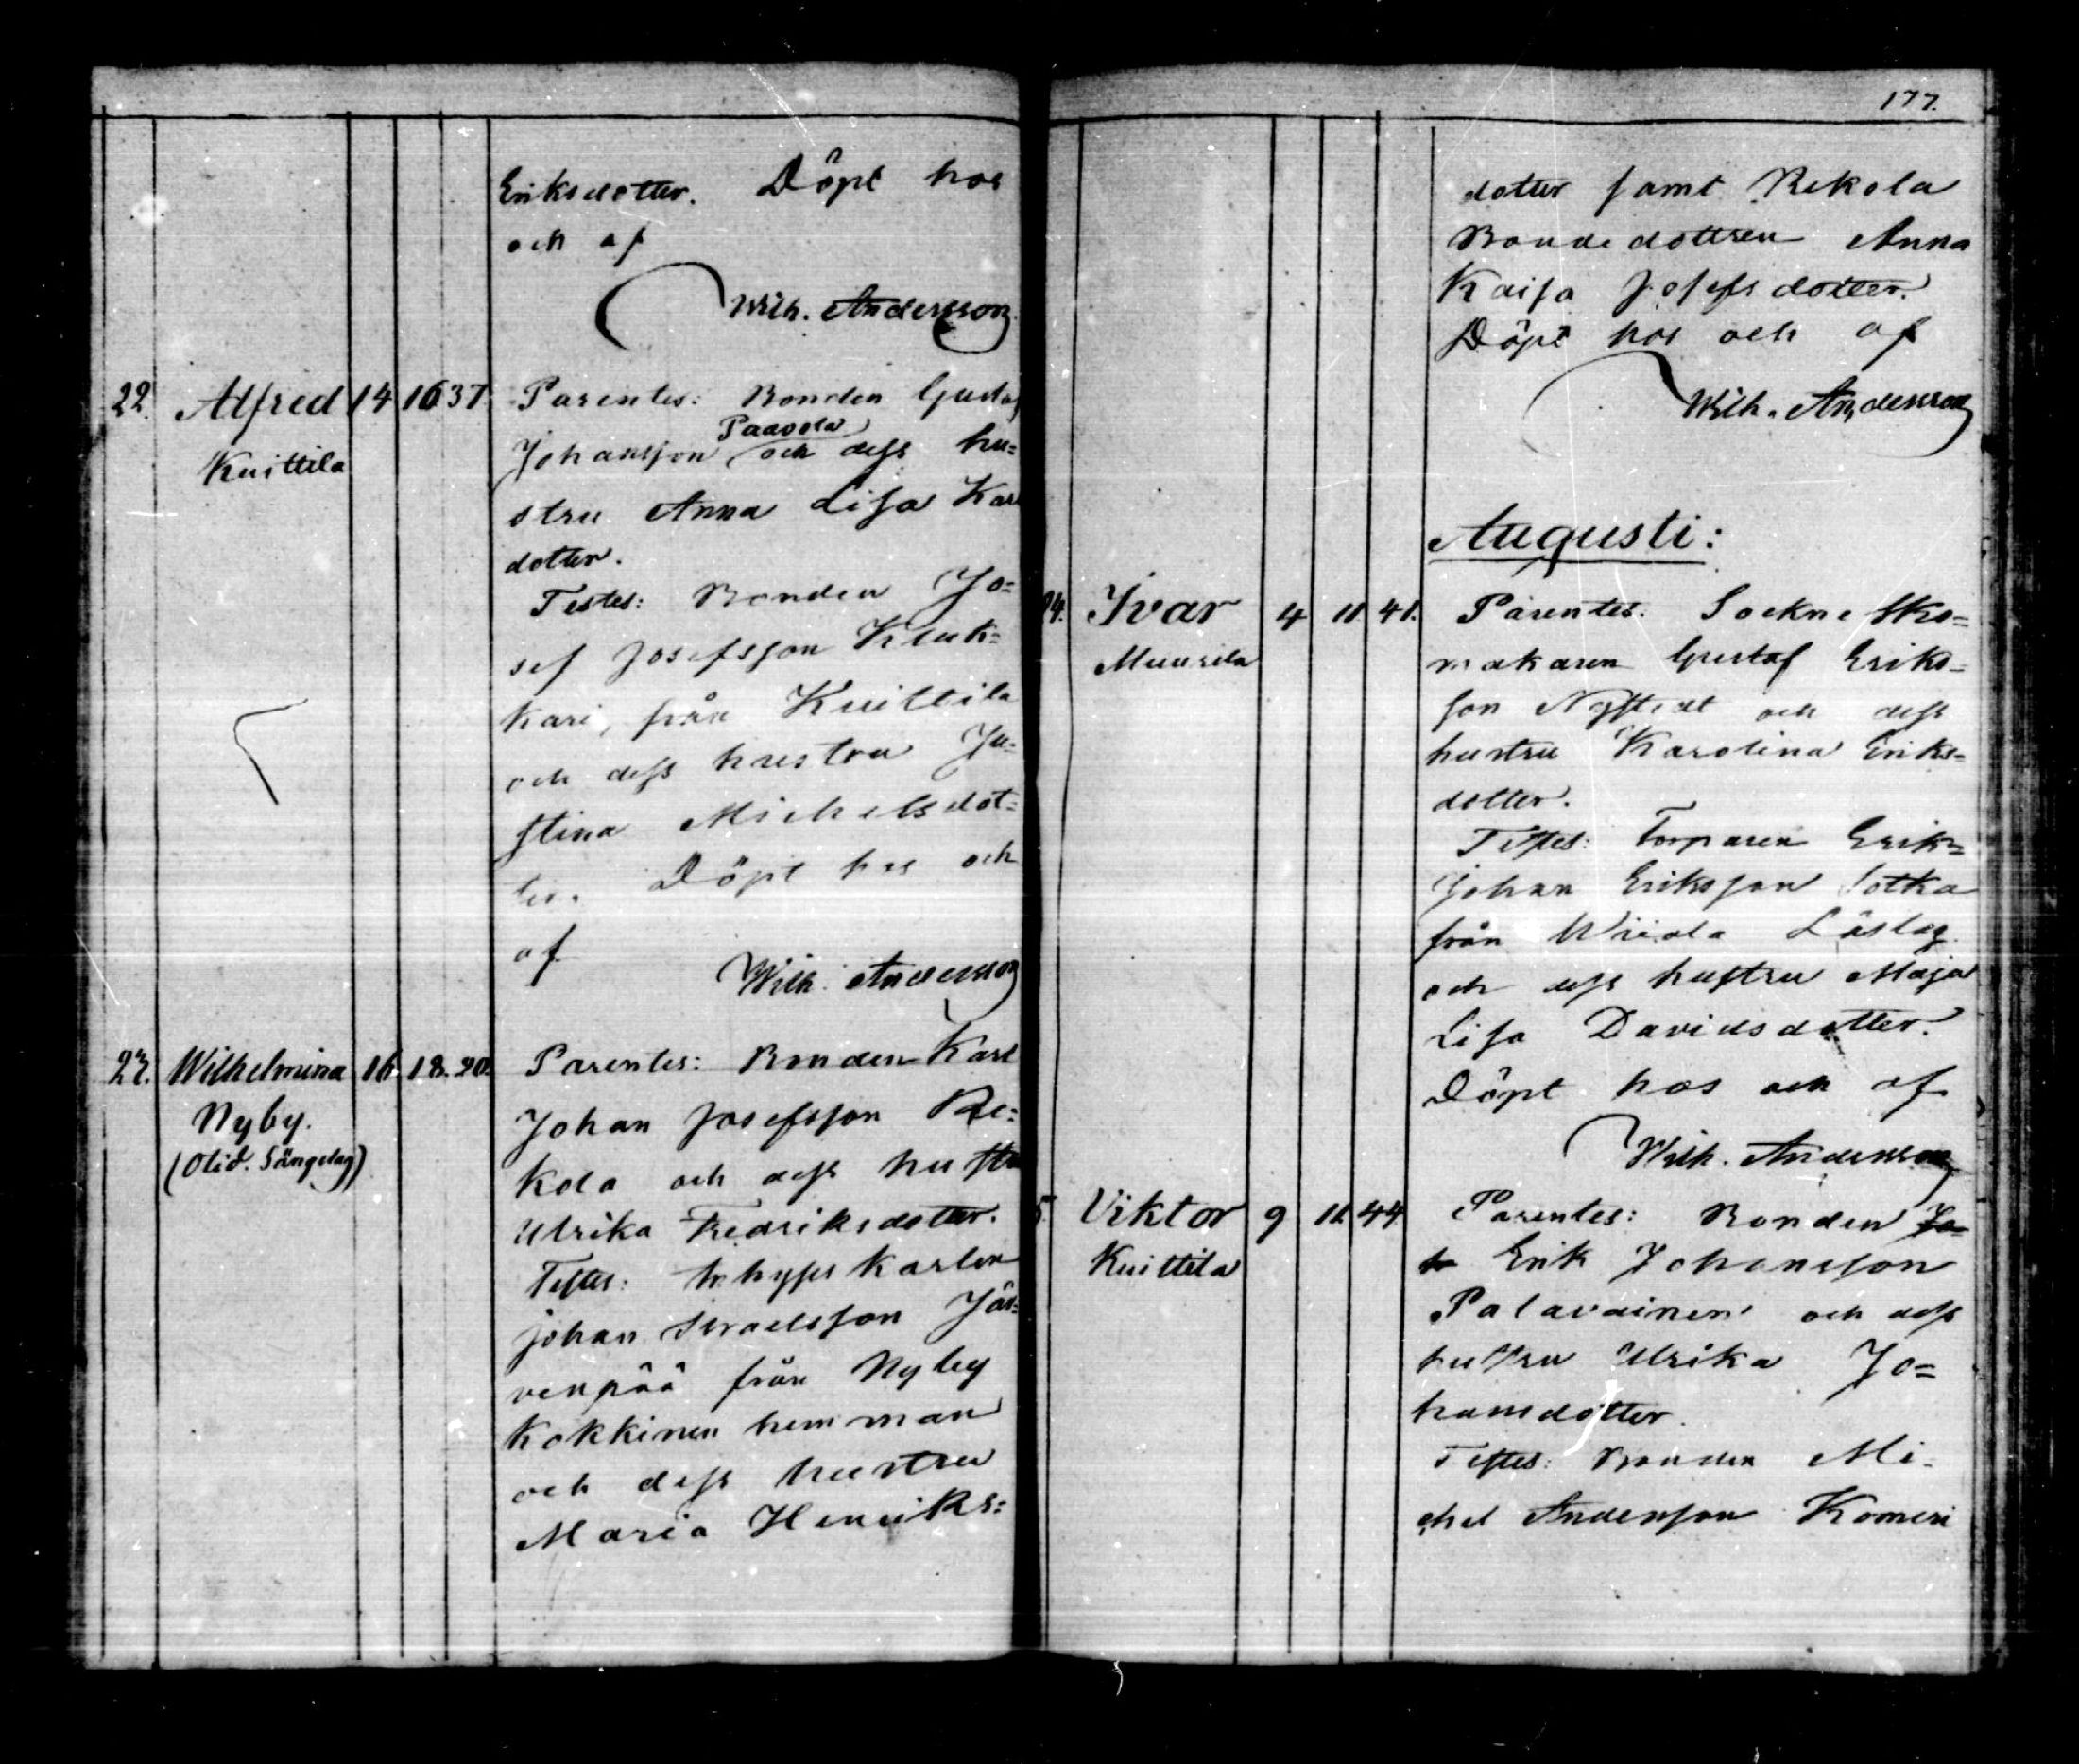 Eriksdotter. Döpt hos
och af
Wilh. Andersson.
22. Alfred 14 16 37 Parentes: Bonden Gustaf
Kuittila
Johansson Paavola och dess hu=
stru Anna Lisa Karl
dotter.
Testes: Bonden Jo=
sef Josefsson Kuuk=
kari, från Kuittila
och dess hustru Ju=
stina Michelsdot=
ter. Döpt hos och
af
Wilh. Andersson
23. Wilhelmina 16. 18. 20. Parentes: Bonden Karl
Nyby.
(Olid. Sängelag)
Johan Josefsson Re=
kola och dess hustru
Ulrika Fredriksdotter.
Testes: Inhyses karlen
Johan Israelsson Jär=
venpää från Nyby
Kokkinen hemman
och dess hustru
Maria Henriks=
177.
dotter samt Rekola
Bondedottren Anna
Kaisa Josefsdotter.
Döpt hos och af
Wilh. Andersson
Augusti:
24. Ivar 4 11 41. Parentes. Sockne Sko=
Muurila
makaren Gustaf Eriks=
son Nystedt och dess
hustru Karolina Eriks=
dotter.
Testes: Torparen Erik
Johan Eriksson Sotka
från Wiiala Läslag
och dess hustru Maja
Lisa Davidsdotter.
Döpt hos och af
Wilh. Andersson
5. Viktor 9 11 44 Parentes: Bonden Jo=
Kuittila
h Erik Johansson
Palavainen och dess
hustru Ulrika Jo=
hansdotter.
Testes: Bonden Mi=
chel Andersson Komeri